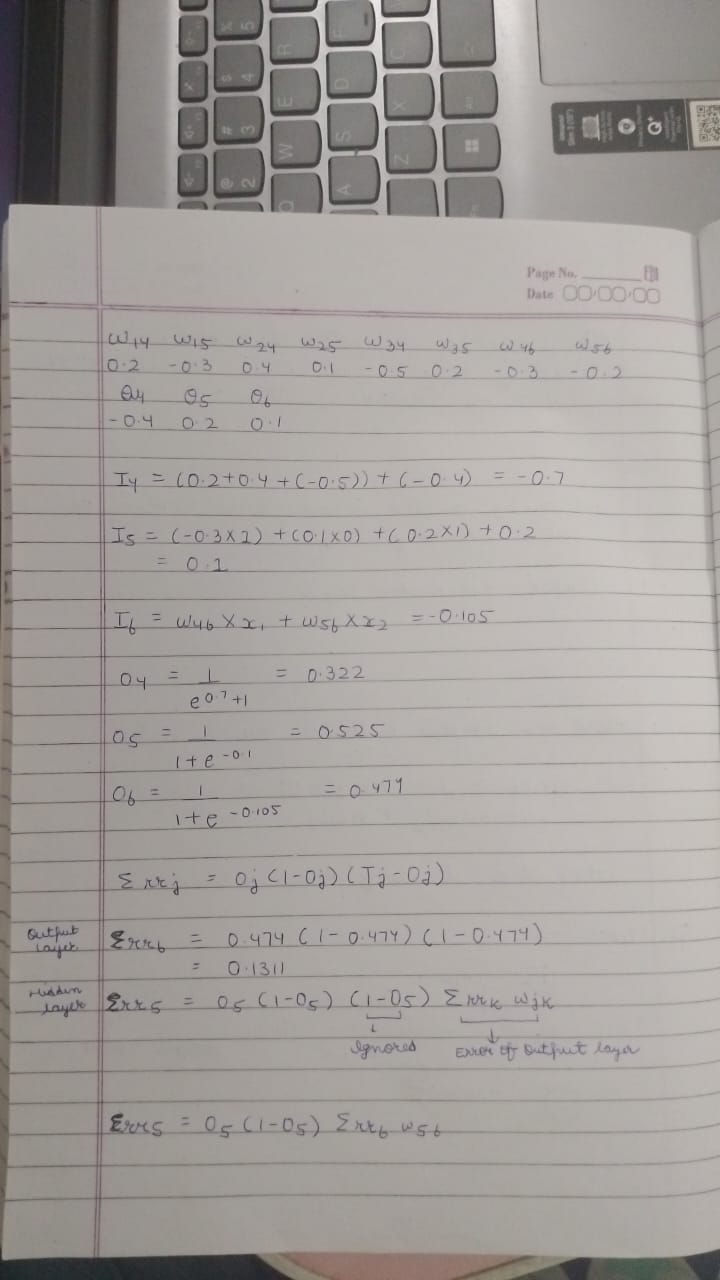 Page No.
Date
W14 W15 W24 W25 W34 W35 W46 W56
0.2 -0.3 0.4 0.1 -0.5 0.2 -0.3 -0.2
θ4 θ5 θ6
-0.4 0.2 0.1
I4 = (0.2+0.4+(-0.5)) + (-0.4) = -0.7
I5 = (-0.3×1) + (0.1×0) + (0.2×1) + 0.2
= 0.1
I6 = W46 × x1 + W56 × x2 = -0.105
O4 = 1/(e^0.7+1) = 0.322
O5 = 1/(1+e^-0.1) = 0.525
O6 = 1/(1+e^-0.105) = 0.474
Errj = Oj (1-Oj) (Tj-Oj)
Output layer Err6 = 0.474 (1-0.474) (1-0.474)
= 0.1311
Hidden layer Err5 = O5 (1-O5) (1-O5) Errk Wjk
Ignored Error of Output layer
Err5 = O5 (1-O5) Err6 W56